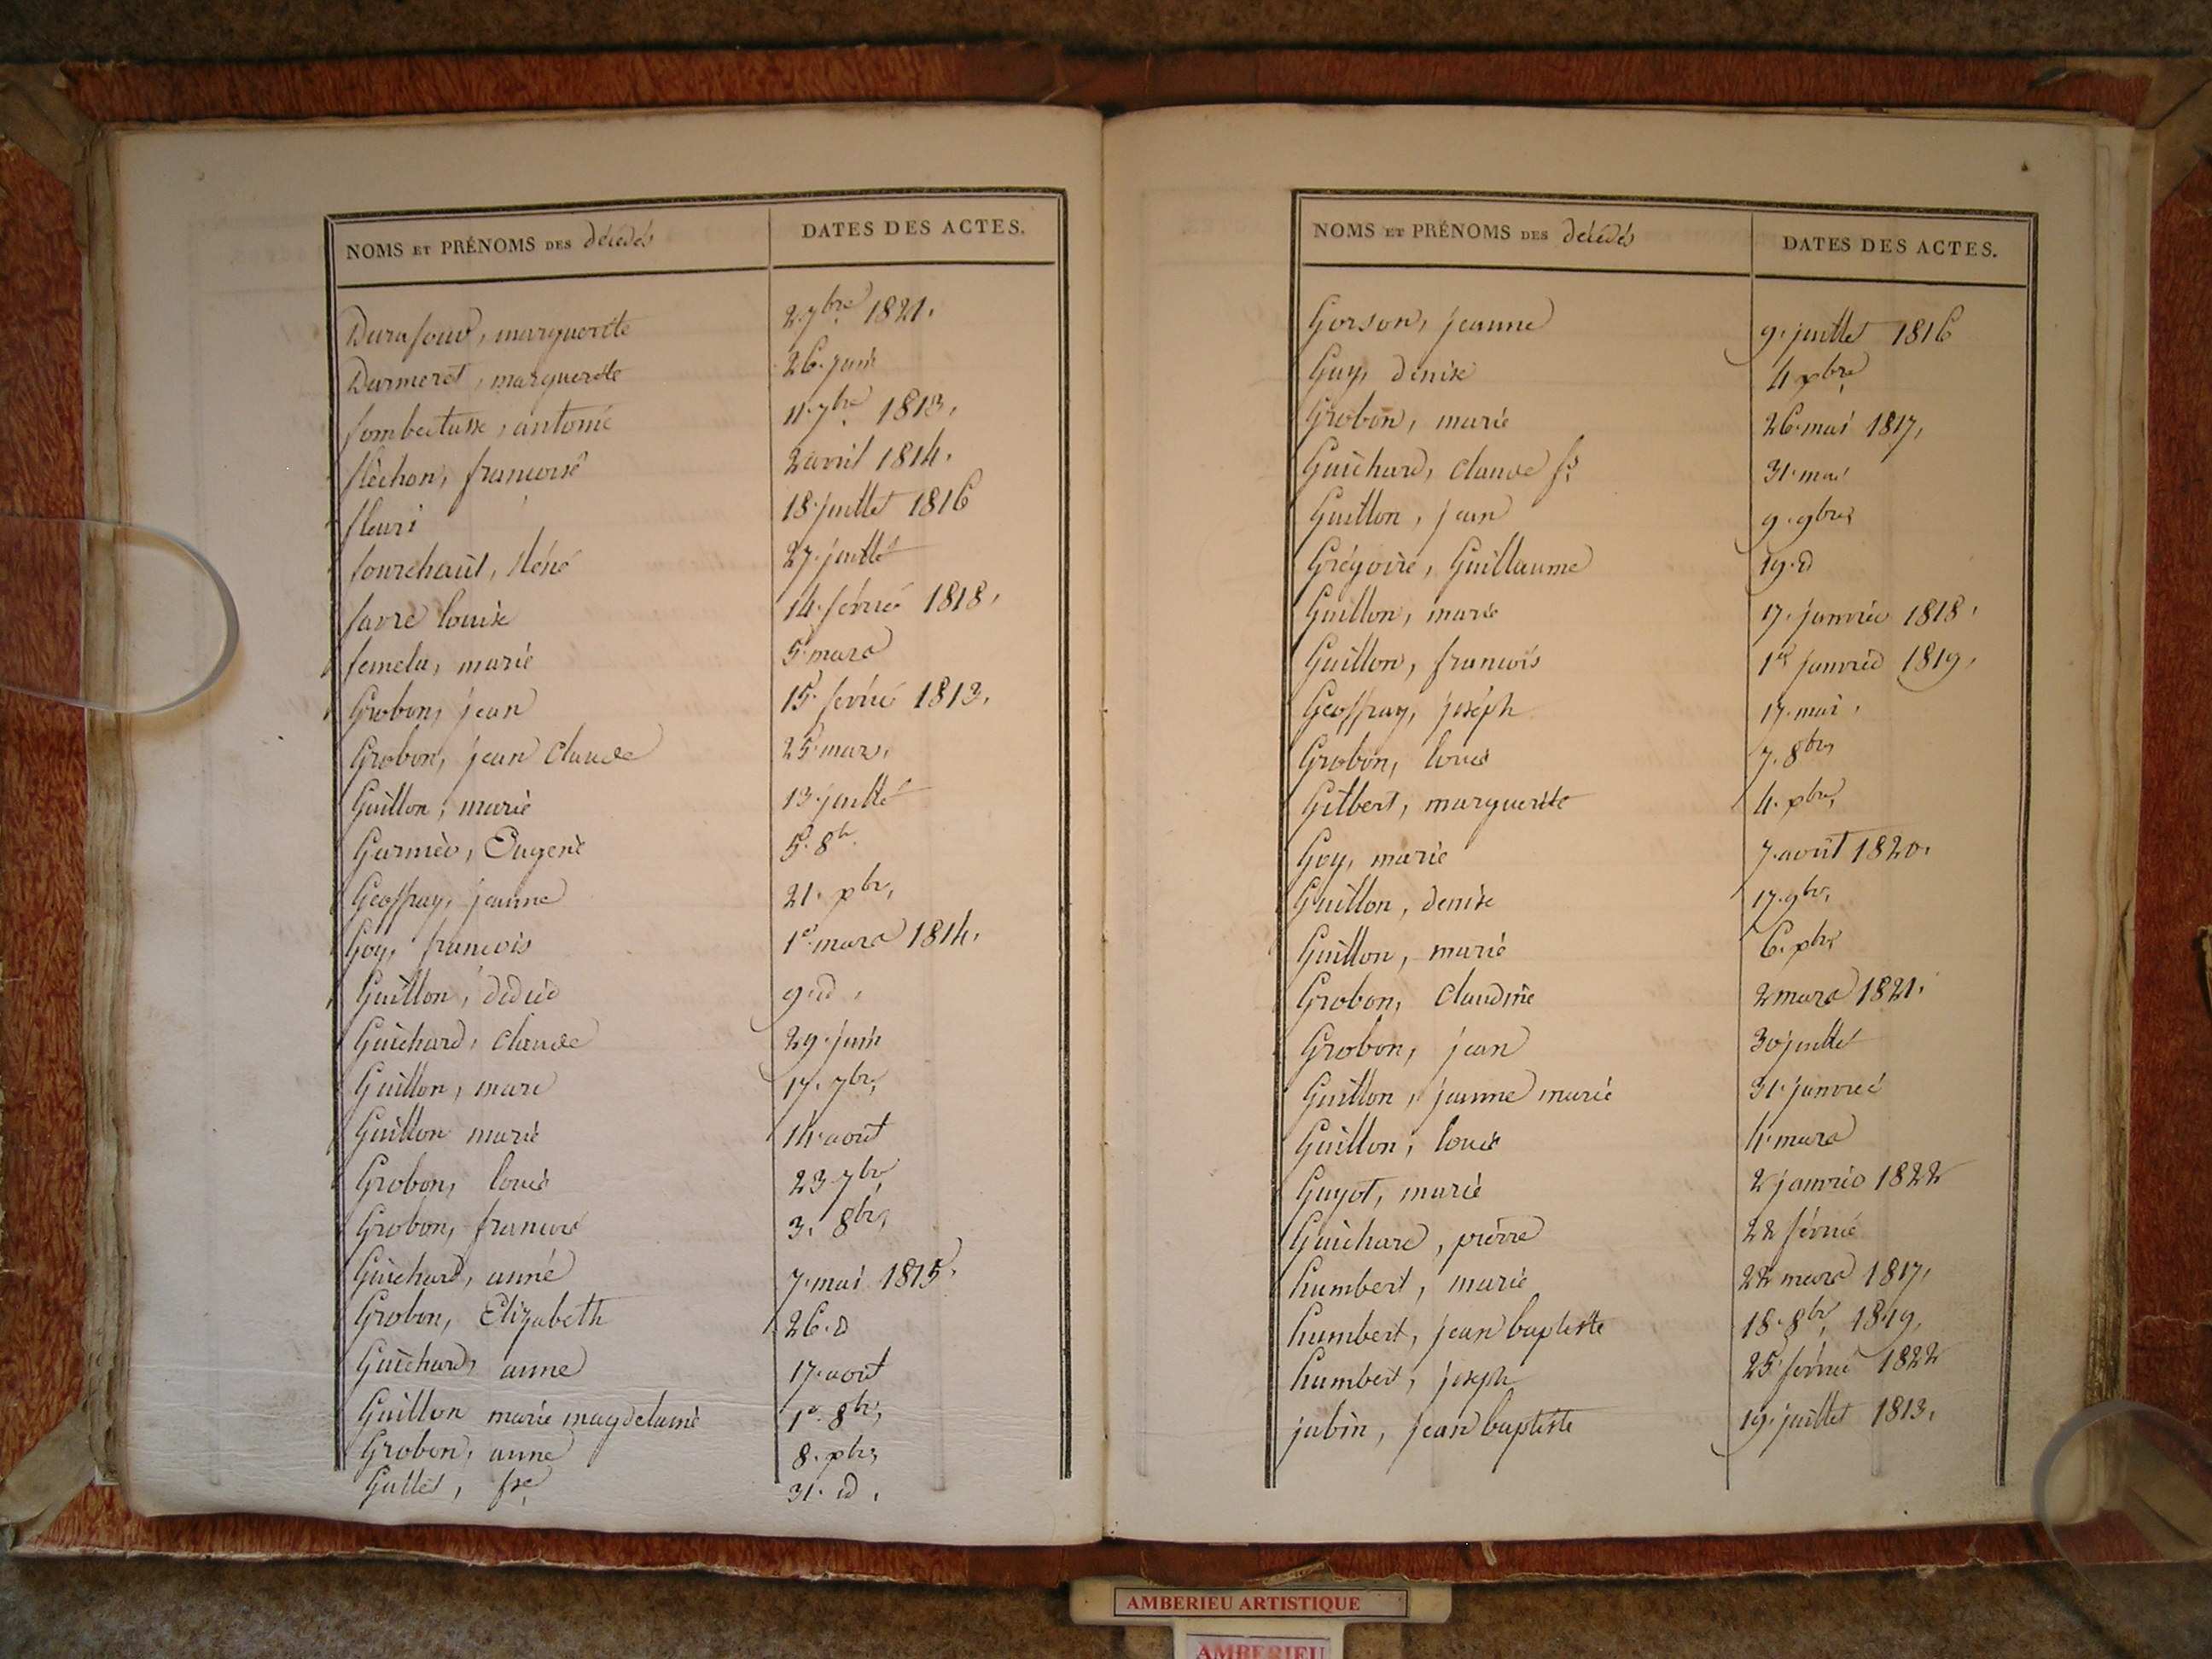 NOMS ET PRÉNOMS DES décédés DATES DES ACTES.
Durafour, marguerite 2 7bre 1821.
Durmeret, marguerite 26 juin
fombectasse, antome 11 7bre 1813.
fléchon, francoise 2 avril 1814.
fleuri 18 juillet 1816
fourchaut, 27 juillet
favre louise 14 février 1818.
femelu, marie 5 mars
Grobon, jean 15 février 1813.
Grobon, jean Claude 25 mars.
Guillon, marie 13 juillet
Garmier, Eugenie 5. 8br
Geoffray, jeanne 21. xbre
Goy, francois 1er mars 1814.
Guillon, didier 9 id.
Guichard, claude 29 juin
Guillon, marc 17. 7bre
Guillon marie 14 aout
Grobon, louis 23 7bre
Grobon, francois 3. 8bre
Guichard, anne 7. mai 1815.
Grobon, Elizabeth 26. d
Guichard, anne 17. aout
Guillon marie magdelaine 1er. 8bre
Grobon, anne 8. xbre
Gullet, fse 31. id.
NOMS ET PRÉNOMS DES décédés DATES DES ACTES.
Gorson, jeanne 9. juillet 1816
Guy, denise 4 xbre
Grobon, marie 26. mai 1817,
Guichard, claude fs 31. mai
Guillon, jean 9. 9bre
Grégoire, Guillaume 19. d
Guillon, marie 17. janvier 1818.
Guillon, francois 1er janvier 1819.
Geoffray, joseph 17. mai.
Grobon, louis 7. 8bre
Gilbert, marguerite 4. xbre
Goy, marie 7. août 1820.
Guillon, denise 17. 9bre
Guillon, marie 6. xbre
Grobon, claudine 2 mars 1821.
Grobon, jean 30 juillet
Guillon, jeanne marie 31. janvier
Guillon, louis 4. mars
Guyot, marie 2 janvier 1822
Guichard, pierre 22 février
humbert, marie 22 mars 1817,
humbert, jean baptiste 18. 8bre 1819,
humbert, joseph 25 février 1822
jubin, jean baptiste 19. juillet 1813.
AMBERIEU ARTISTIQUE
AMBERIEU